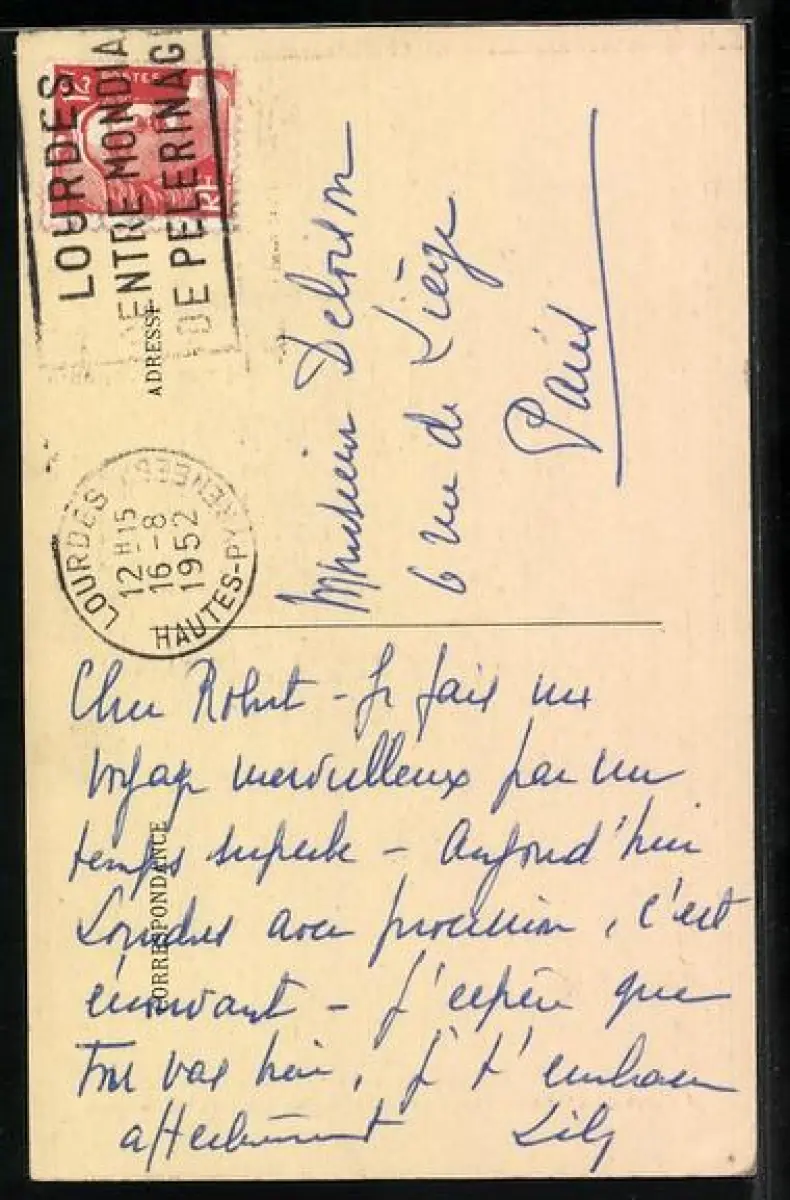 LOURDES
CENTRE MONDIA
DE PELERINAG
12
POSTES
RF
ADRESSE
LOURDES
12 H 15
16 -8
1952
HAUTES-PYRENEES
Monsieur
6 rue de Liège
Paris
CORRESPONDANCE
Cher Robert - Je fais un
voyage merveilleux par un
temps superbe - Aujourd'hui
Lourdes avec procession, c'est
émouvant - J'espère que
tu vas bien, je t'embrasse
affectueusement Lily